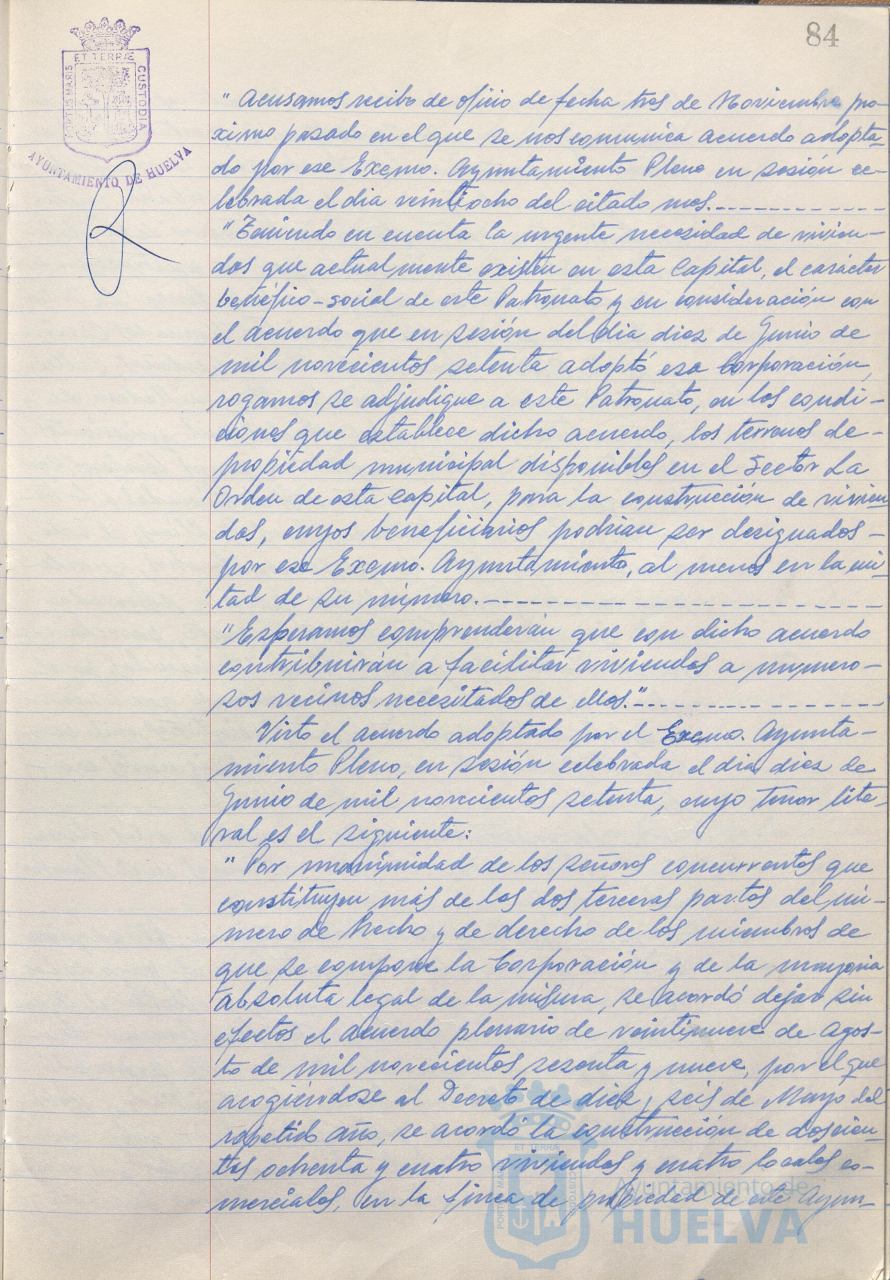 84
ET TERRÆ
PORTUS MARIS
CUSTODIA
AYUNTAMIENTO DE HUELVA
" Acusamos recibo de oficio de fecha tres de Noviembre pro-
ximo pasado en el que se nos comunica acuerdo adopta-
do por ese Excmo. Ayuntamiento Pleno en sesión ce-
lebrada el dia veintiocho del citado mes.
"Teniendo en cuenta la urgente necesidad de vivien-
das que actualmente existen en esta Capital, el carácter
benéfico-social de este Patronato y en consideración con
el acuerdo que en sesión del dia diez de Junio de
mil novecientos setenta adoptó esa Corporación,
rogamos se adjudique a este Patronato, en las condi-
ciones que establece dicho acuerdo, los terrenos de-
propiedad municipal disponibles en el Sector La
Orden de esta capital, para la construcción de vivien
das, cuyos beneficiarios podrian ser designados -
por ese Excmo. Ayuntamiento, al menos en la mi-
tad de su número.
"Esperamos comprenderán que con dicho acuerdo
contribuirán a facilitar viviendas a numero-
sos vecinos necesitados de ellas."
Visto el acuerdo adoptado por el Excmo. Ayunta-
miento Pleno, en sesión celebrada el dia diez de
Junio de mil novecientos setenta, cuyo tenor lite-
ral es el siguiente:
" Por unanimidad de los señores concurrentes que
constituyen más de las dos terceras partes del nú-
mero de hecho y de derecho de los miembros de
que se compone la Corporación y de la mayoria
absoluta legal de la misma, se acordó dejar sin
efectos el acuerdo plenario de veintinueve de Agos-
to de mil novecientos sesenta y nueve, por el que
acogiéndose al Decreto de diez y seis de Mayo del
repetido año, se acordó la construcción de doscien-
tas ochenta y cuatro viviendas y cuatro locales co-
merciales, en la finca de propiedad de este Ayun-
Ayuntamiento de
HUELVA